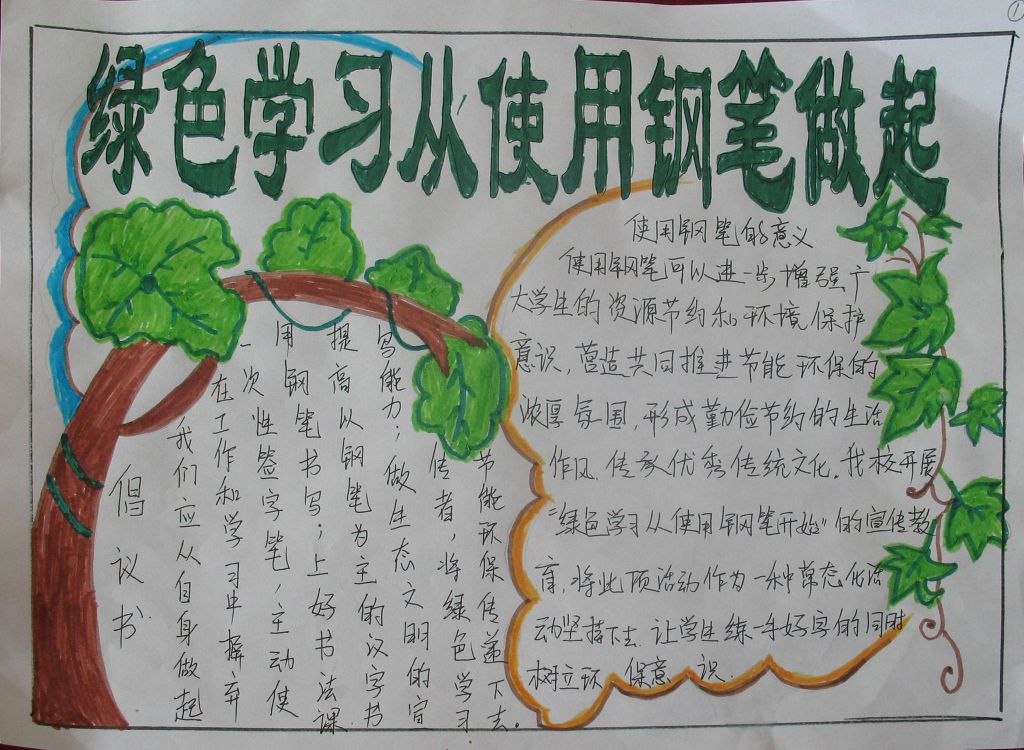 ①
绿色学习从使用钢笔做起
倡议书
我们应从自身做起
在工作和学习中摒弃
一次性签字笔,主动使
用钢笔书写;上好书法课
提高以钢笔为主的汉字书
写能力;做生态文明的宣
传者,将绿色学习
节能环保传递下去。
使用钢笔的意义
使用钢笔可以进一步增强广
大学生的资源节约和环境保护
意识,营造共同推进节能环保的
浓厚氛围,形成勤俭节约的生活
作风,传承优秀传统文化。我校开展
“绿色学习从使用钢笔开始”的宣传教
育,将此项活动作为一种常态化活
动坚持下去,让学生练一手好字的同时
树立环保意识.